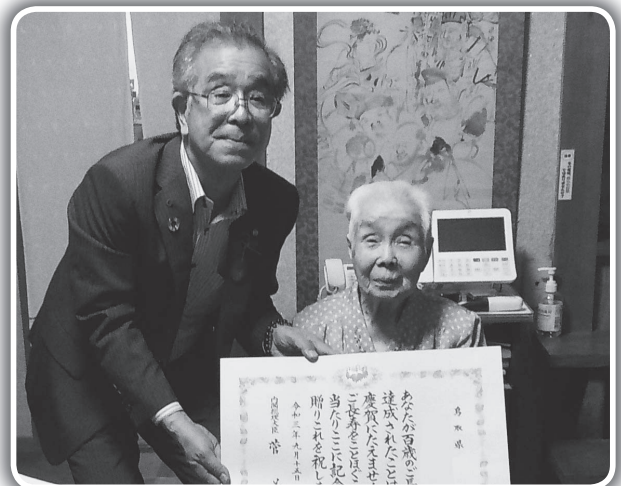 鳥取県
あなたが百歳のご長
達成されたことは
慶賀にたえませ
ご長寿をことほぐ
当たりここに記念
贈りこれを祝し
令和三年九月十五日
内閣総理大臣 菅